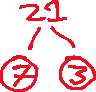 21
7 3